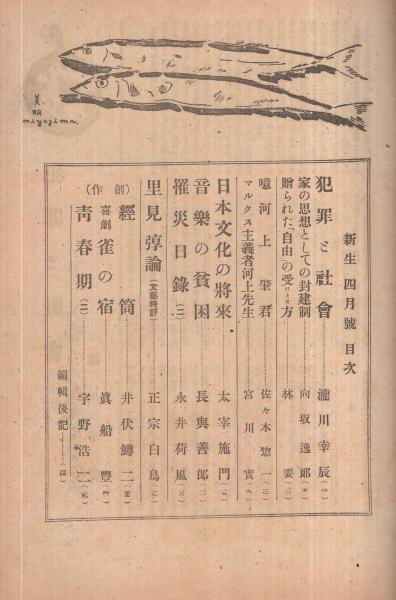 新生四月號 目次
犯罪と社會……瀧川幸辰
家の思想としての封建制……向坂逸郎
贈られた「自由」の受け方……林 要
噫河上肇君……佐々木惣一
マルクス主義者河上先生……宮川實
日本文化の將來……太宰施門
音樂の貧困……長與善郎
罹災日錄(二)……永井荷風
里見弴論(文藝時評)……正宗白鳥
(創作)
經筒……井伏鱒二
喜劇 雀の宿……眞船豐
靑春期(二)……宇野浩二
編輯後記……